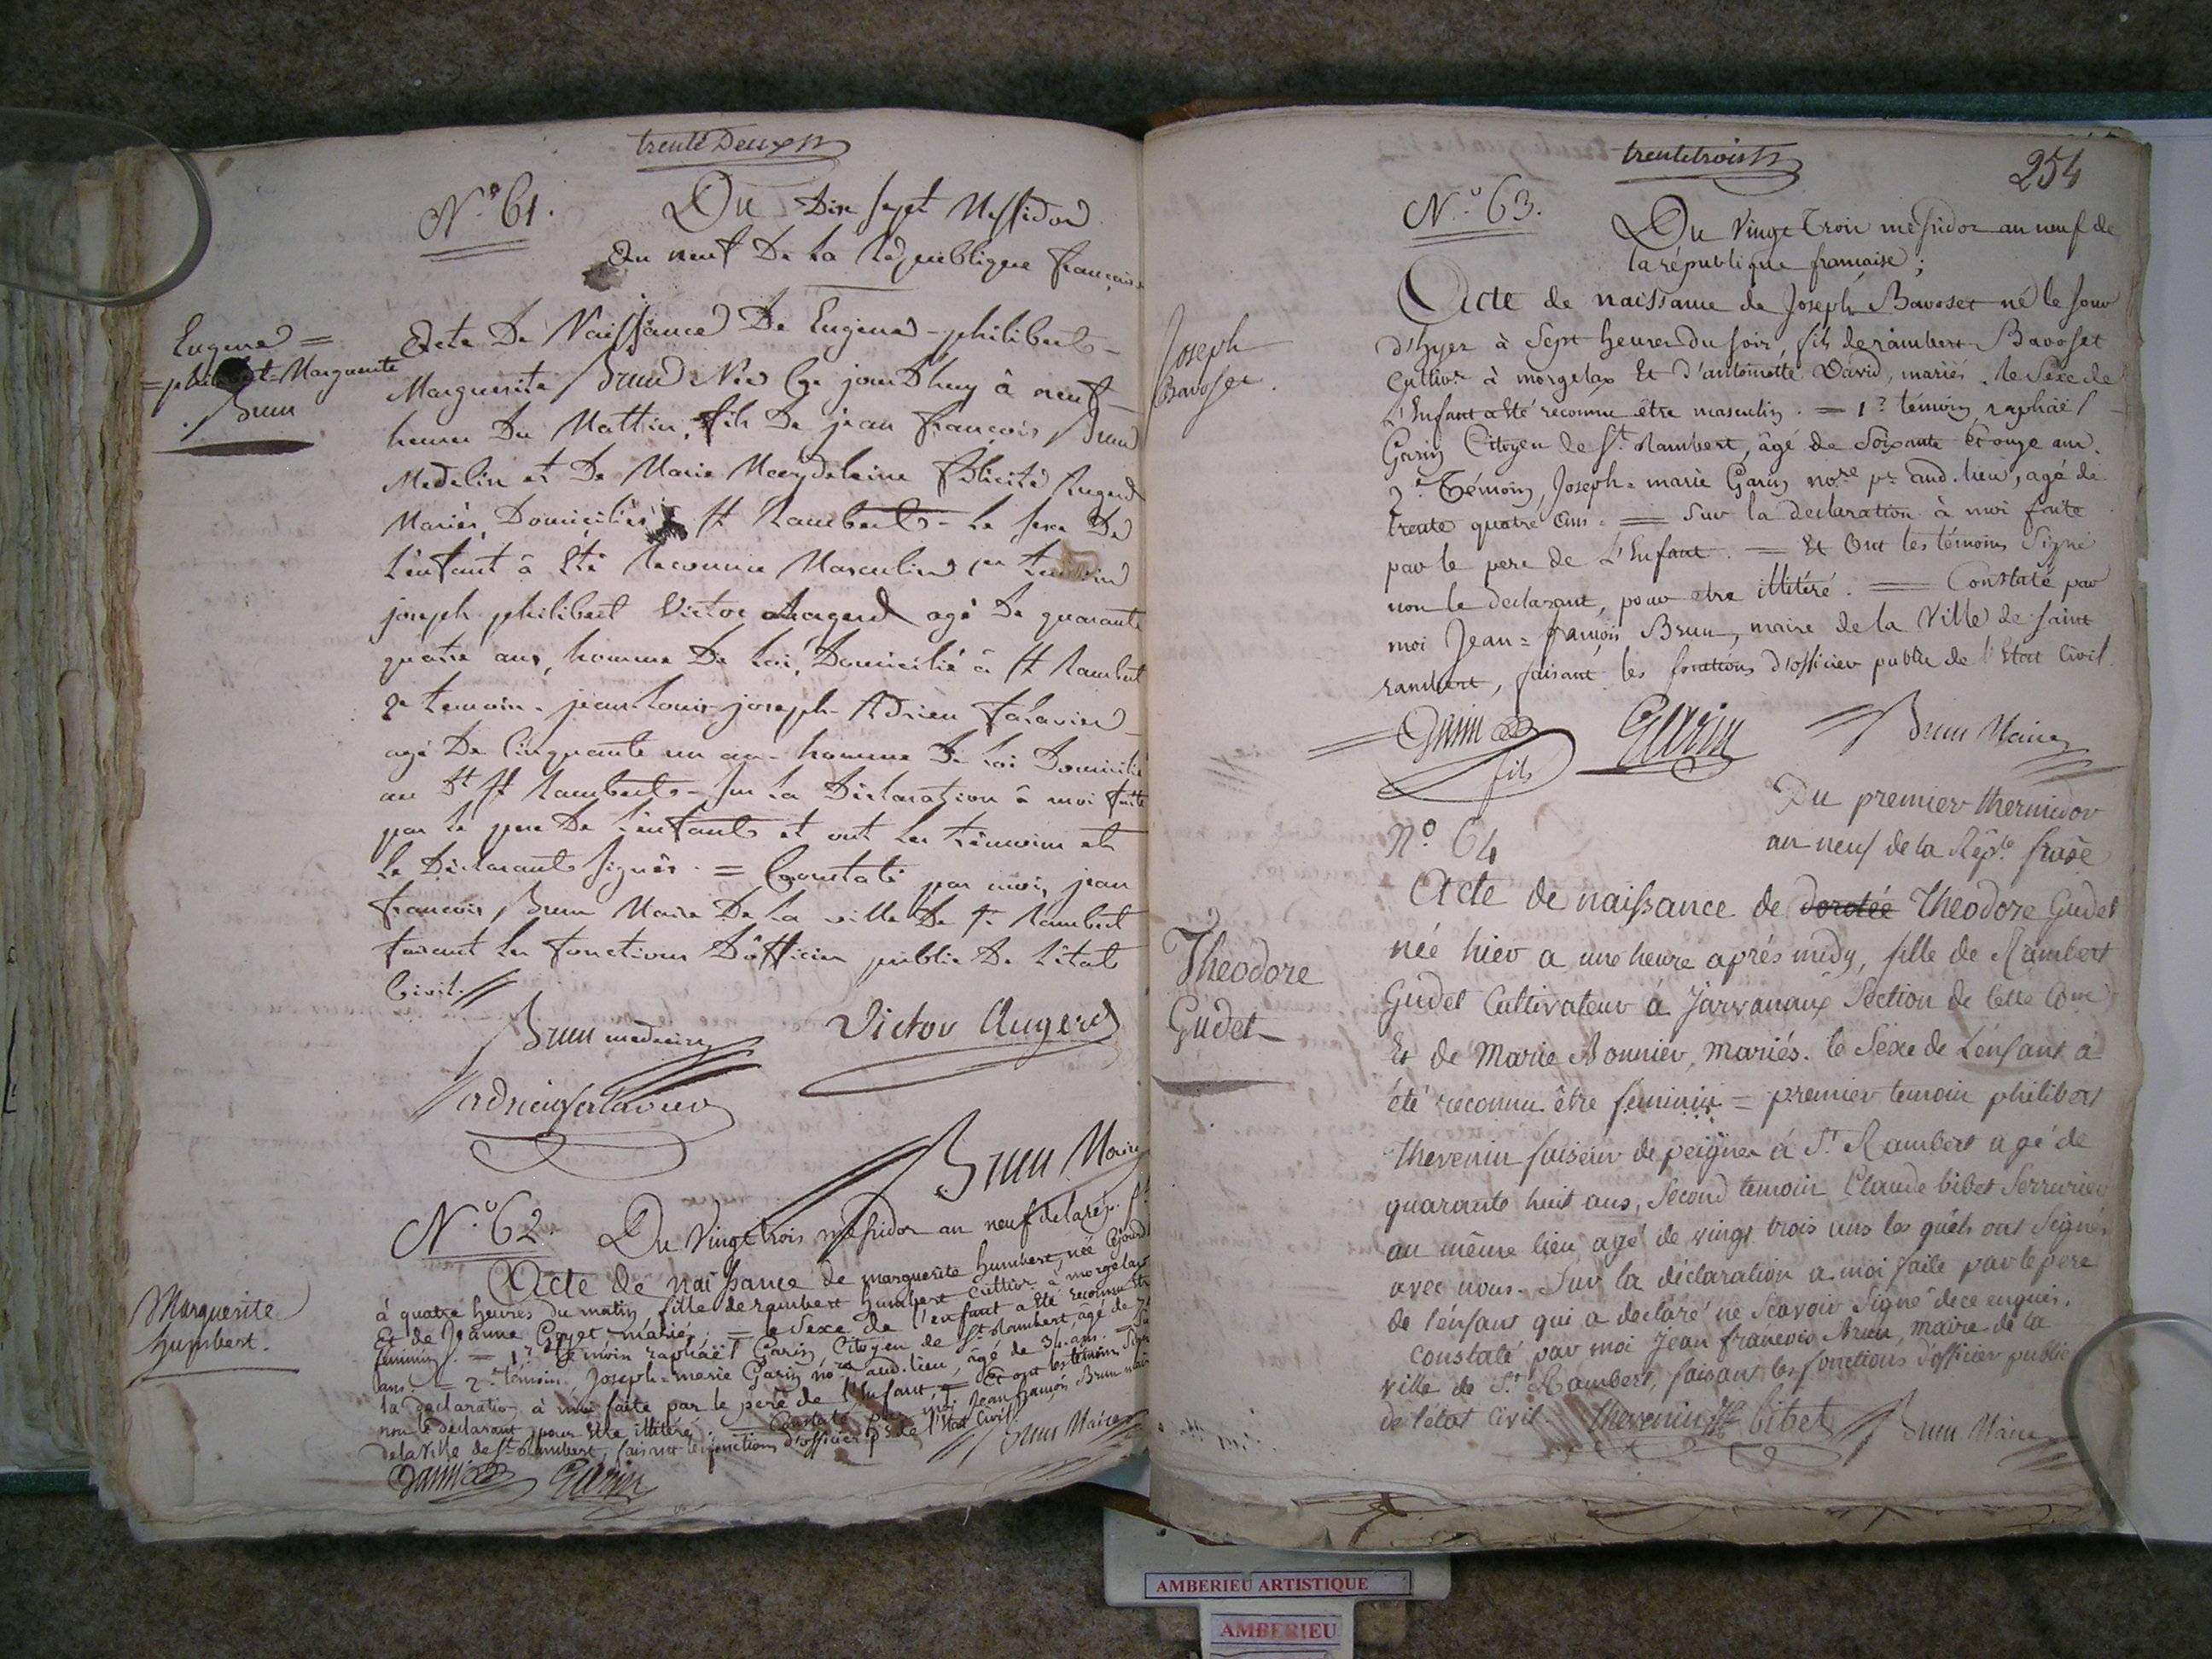 trente Deux
N.° 61. Du Dix sept Messidor
an neuf De la République française
Eugene =
= philibert-Marguerite
Brun
Acte De Naissance De Eugene-philibert-
Marguerite Brun Née Ce jourd'huy à neuf
heures Du Mattin, fils De jean françois Brun
Medecin et De Marie Magdeleine félicité Augerd
Mariés, Domiciliés à St Rambert - Le sexe De
L'enfant à été Reconnu Masculin 1er temoin
joseph philibert Victor Augerd agé De quarante
quatre ans, homme De Loi, Domicilié à St Rambert
2e temoin - jean-Louis-joseph-Adrien falavier
agé De Cinquante un an - homme De Loi Domicilié
au dt St Rambert - sur La Déclaration à moi faite
par le pere De L'enfant et ont les témoins et
le Déclarant signés. = Constaté par moi, jean
françois Brun Maire De La ville De St Rambert
faisant les fonctions D'officier public De L'état
Civil.
Brun medecin Victor Augerd
adrien falavier
Brun Maire
N.° 62. Du Vingt trois messidor an neuf de la rép. f.se
Marguerite
humbert.
Acte de naissance de marguerite humbert, née Cejourd'
à quatre heures du matin, fille de rambert humbert Cultivr. à morgelas
Et de Jeanne Goyet mariés; = le Sexe de l'enfant a Eté reconnu
féminin. = 1r. témoin raphaël Garin Citoyen de St. Rambert, âgé de
ans. = 2.e témoin Joseph=marie Garin no.re aud. lieu, âgé de 34. ans. =
la declaration à moi faite par le pere de l'Enfant = Et ont les témoins Signé
non le declarant pour Etre illitéré. = Constaté par moi Jean françois Brun
de la Ville de St. Rambert, faisant les fonctions d'officier p. de l'Etat Civil.
Garin Garin Brun Maire
trente trois
254
N.° 63.
Du Vingt Trois messidor an neuf de
la république française;
Joseph
Bavoset.
Acte de naissance de Joseph Bavoset né le jour
d'hyer à Sept heures du soir, fils de rambert Bavoset
Cultivr. à morgelas Et d'antoinette David, mariés. le Sexe de
L'Enfant a Eté reconnu être masculin. = 1r. témoin raphaël
Garin Citoyen de St. Rambert, âgé de Soixante Et onze ans.
2.e Témoin, Joseph=marie Garin no.re pc. aud. lieu, agé de
trente quatre ans. = Sur la declaration à moi faite
par le pere de L'Enfant. = Et Ont les témoins Signé
non le declarant, pour etre illitéré. = Constaté par
moi Jean=françois Brun, maire de la Ville de saint
rambert, faisant les fonctions d'officier public de l'Etat Civil.
Garin fils Garin Brun Maire
N.° 64
Du premier thermidor
an neuf de la Rép.le fraçse
Théodore
Gudet
Acte de naissance de dorotée Théodore Gudet
née hier a une heure aprés midy, fille de Rambert
Gudet Cultivateur à Jarvanaux Section de Cette Com
Et de Marie Bonnier, mariés. le Séxe de L'enfant à
été reconnu être féminin = premier temoin philibert
thevenin faiseur de peignes à St. Rambert agé de
quarante huit ans, Second temoin Claude bibet Serrurier
au même lieu agé de vingt trois ans les quels ont Signé
avec nous. Sur la déclaration a moi faite par le pere
de l'énfant qui a declaré ne Scavoir Signé de ce enquis.
Constaté par moi Jean francois Brun, maire de la
ville de St. Rambert, faisant les fonctions d'officier public
de l'état Civil. thevenin bibet Brun Maire
AMBERIEU ARTISTIQUE
AMBERIEU